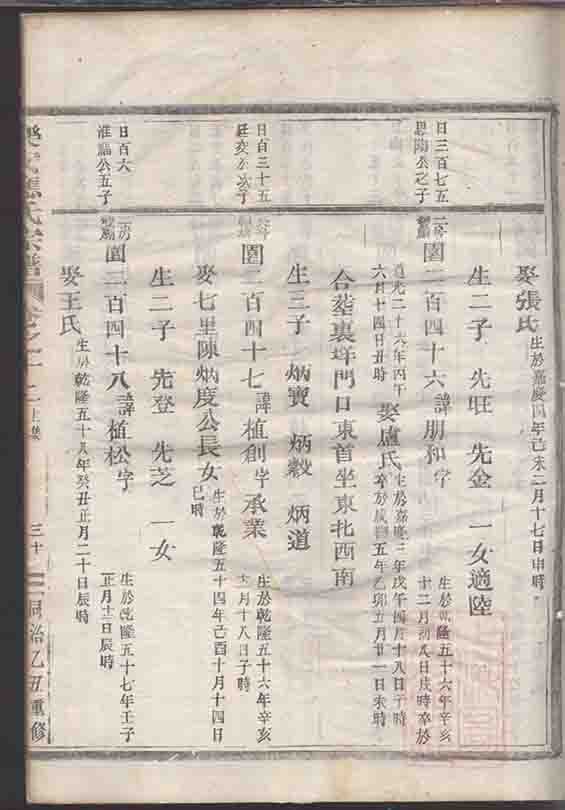 娶張氏 生於嘉慶四年己未二月十七日申時
生二子 先旺 先金 一女適陸
日三百七五
思陶公之子
園二百四十六 諱朋和 字 生於乾隆五十六年辛亥
十二月初八日戌時卒於
道光二十六年丙午
六月十四日丑時 娶盧氏 生於嘉慶三年戊午四月十八日子時
卒於咸豐五年乙卯五月廿一日未時
合塟裏垾門口東首坐東北西南
生三子 炳寶 炳穀 炳道
日百三十五
廷亥公次子
園二百四十七 諱植創 字承業 生於乾隆五十六年辛亥
月十八日子時
娶七里陳炳度公長女 生於乾隆五十四年己酉十月十四日
巳時
生二子 先登 先芝 一女
日百六
淮臨公五子
二房
園二百四十八 諱植松 字 生於乾隆五十七年壬子
正月十三日辰時
娶王氏 生於乾隆五十八年癸丑正月二十日辰時
氏宗譜 卷之 三十 同治乙丑重修